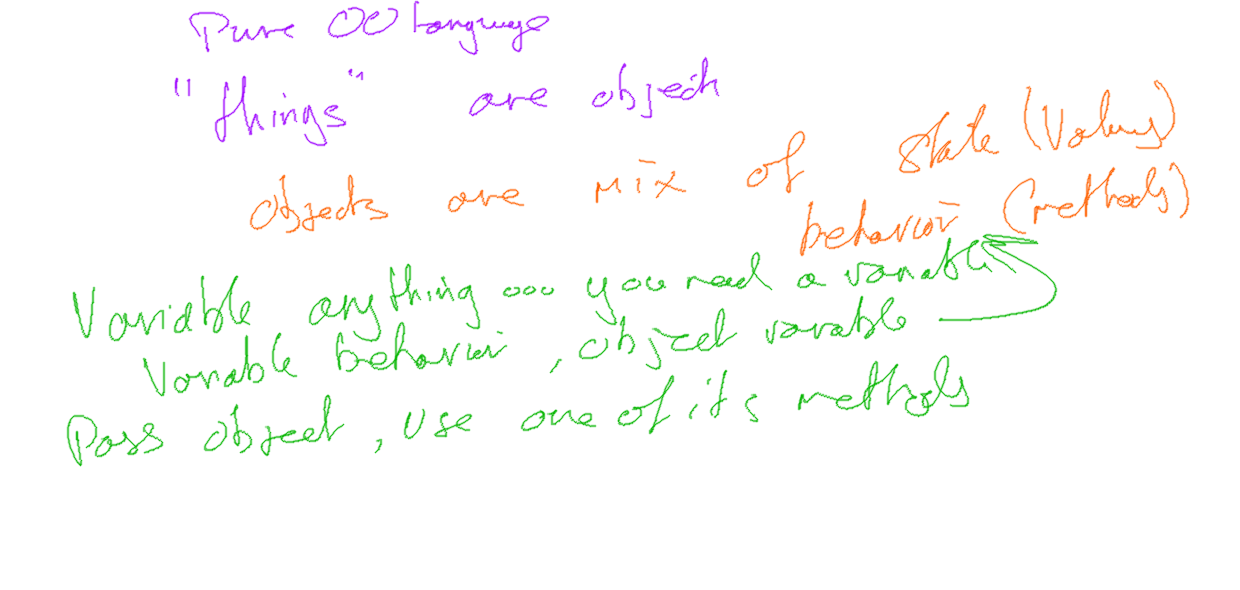 Pure OO Language
"things" are object
objects are mix of state (Values)
behavior (methods)
Variable anything ... you need a variable
Variable behavior, object variable
Pass object, use one of it's methods